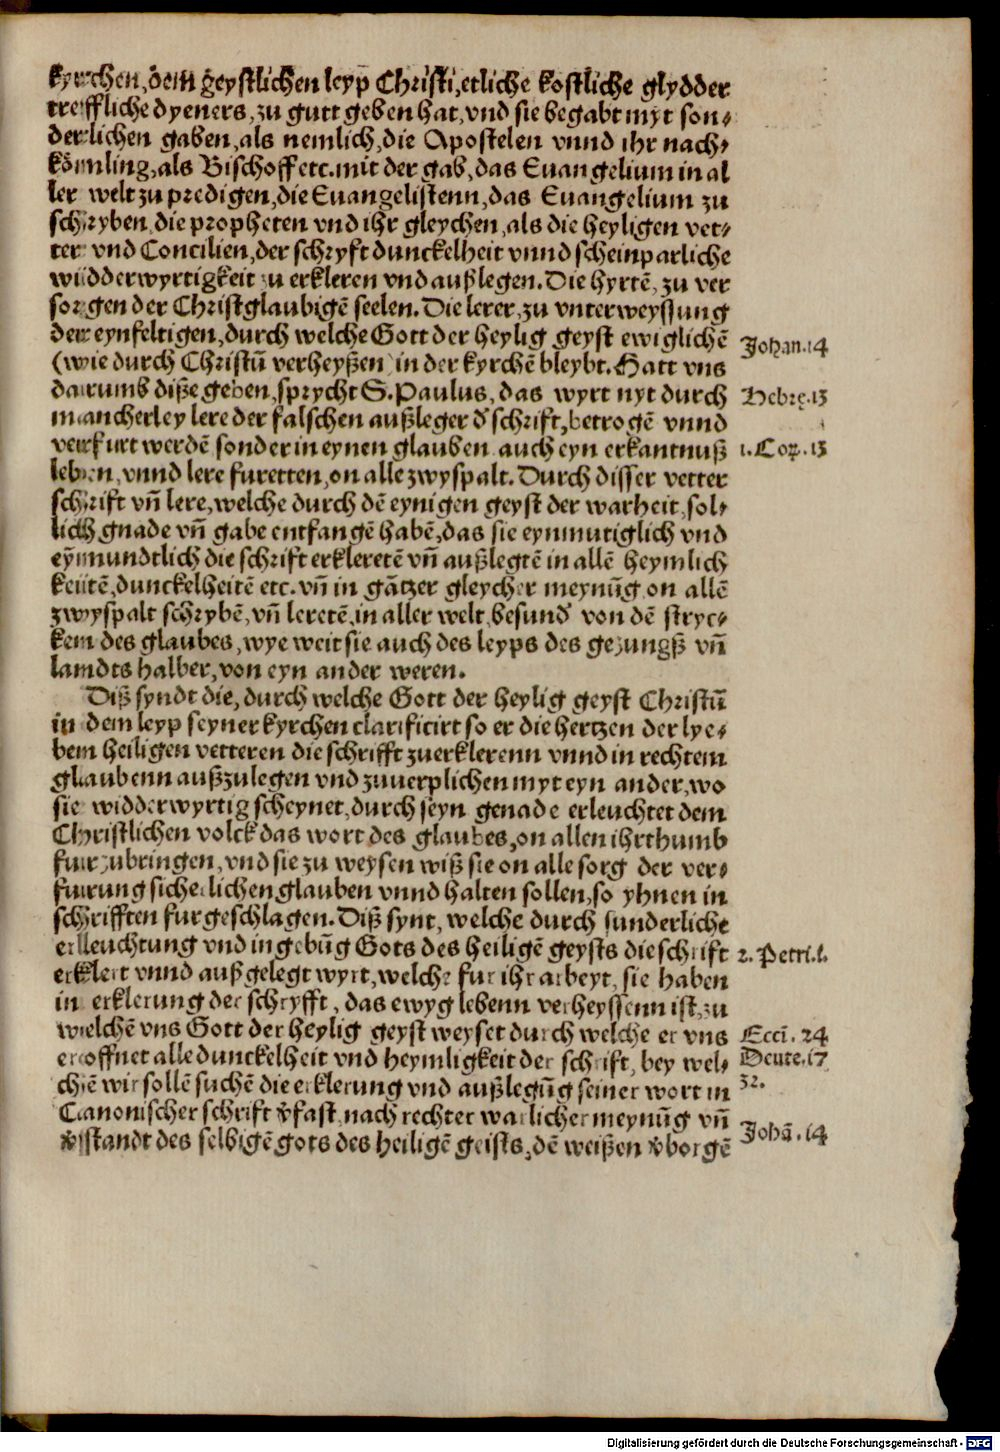 kyrchen, dem geystlichen leyp Christi, etliche kostliche glydder
treffliche dyeners, zu gutt geben hat, vnd sie begabt myt son⸗
derlichen gaben, als nemlich, die Apostelen vnnd ihr nach⸗
kömling, als Bischoff etc. mit der gab, das Euangelium in al
ler welt zu predigen, die Euangelistenn, das Euangelium zu
schryben, die propheten vnd ihr gleychen, als die heyligen vet⸗
ter vnd Concilien, der schryft dunckelheit vnnd scheinparliche
widderwyrtigkeit zu erkleren vnd außlegen. Die hyrtē, zu ver
sorgen der Christglaubigē seelen. Die lerer, zu vnterweyssung
der eynfeltigen, durch welche Gott der heylig geyst ewiglichē
(wie durch Christū verheyßen) in der kyrchē bleybt. Hatt vns
Johan. 14
darumb diße geben, sprycht S. Paulus, das wyrt nyt durch
Hebrę. 13
mancherley lere der falschen außleger d̕ schrift, betrogē vnnd
verfurt werdē sonder in eynen glauben auch eyn erkantnuß
1. Cor. 13
leben, vnnd lere furetten, on alle zwyspalt. Durch disser vetter
schrift vñ lere, welche durch dē eynigen geyst der warheit, sol⸗
lich gnade vñ gabe entfangē habē, das sie eynmutiglich vnd
eyñmundtlich die schrift erkleretē vñ außlegtē in allē heymlich
keitē, dunckelheitē etc. vñ in gātzer gleycher meynūg on allē
zwyspalt schrybē, vñ leretē, in aller welt, besund̕ von dē stryc⸗
ken des glaubes, wye weit sie auch des leyps des gezungß vñ
landts halber, von eyn ander weren.
Diß syndt die, durch welche Gott der heylig geyst Christū
in dem leyp seyner kyrchen clarificirt so er die hertzen der lye⸗
ben heiligen vetteren die schrifft zuerklerenn vnnd in rechtem
glaubenn außzulegen vnd zuuerplichen myt eyn ander, wo
sie widderwyrtig scheynet, durch seyn genade erleuchtet dem
Christlichen volck das wort des glaubes, on allen ihrthumb
fur zubringen, vnd sie zu weysen wiß sie on alle sorg der ver⸗
furung sicherlichen glauben vnnd halten sollen, so yhnen in
schrifften furgeschlagen. Diß synt, welche durch sunderliche
erleuchtung vnd ingebūg Gots des heiligē geysts die schrift
2. Petri. 1.
erklert vnnd außgelegt wyrt, welche fur ihr arbeyt, sie haben
in erklerung der schryfft, das ewyg lebenn verheyssenn ist, zu
welchē vns Gott der heylig geyst weyset durch welche er vns
Eccī. 24
eroffnet alle dunckelheit vnd heymligkeit der schrift, bey wel⸗
Deute. 17
chē wir sollē suchē die erklerung vnd außlegūg seiner wort in
32.
Canonischer schrift v̕fast, nach rechter warlicher meynūg vñ
v̕standt des selbigē gots des heiligē geists, dē weißen v̕borgē
Johā. 14
Digitalisierung gefördert durch die Deutsche Forschungsgemeinschaft - DFG